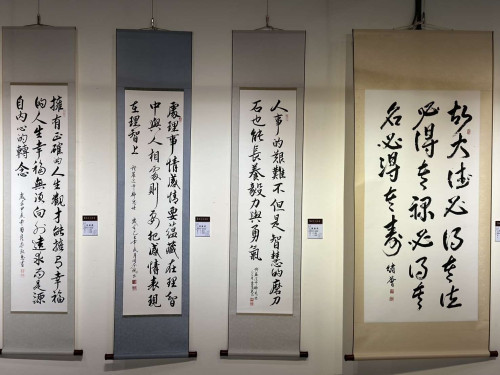 擁有正確的人生觀才能擁有幸福
的人生幸福無須向外追求而是源
自內心的轉念
處理事情感情要蘊藏在理智
中與人相處則要把感情表現
在理智上
人事的艱難不但是智慧的磨刀
石也能長養毅力與勇氣
故大德必得其位
必得其祿必得其
名必得其壽